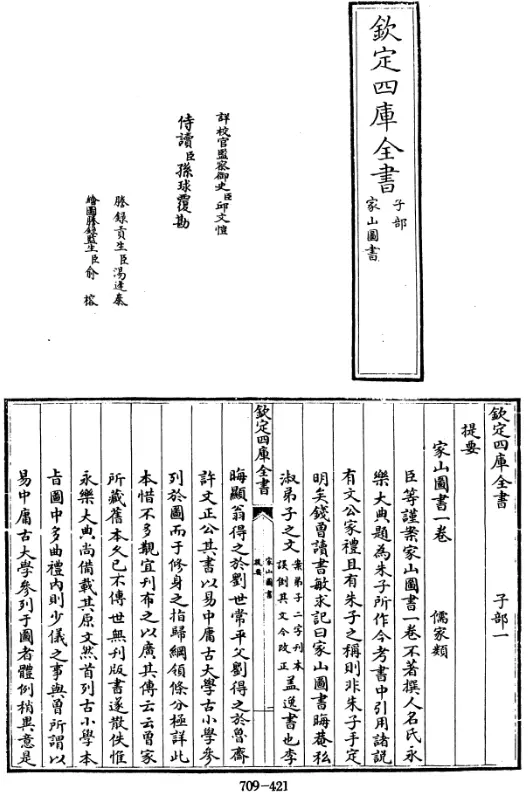 欽定四庫全書
子部
家山圖書
詳校官監察御史臣邱文愷
侍讀臣孫球覆勘
謄錄貢生臣湯逢泰
繪圖謄錄監生臣俞榕
欽定四庫全書 子部一
提要
家山圖書一卷 儒家類
臣等謹案家山圖書一卷不著撰人名氏永
樂大典題為朱子所作今考書中引用諸説
有文公家禮且有朱子之稱則非朱子手定
明矣錢曾讀書敏求記曰家山圖書晦菴私
淑弟子之文案弟子二字刊本誤倒其文今改正蓋逸書也李
欽定四庫全書 家山圖書 提要
晦顯翁得之於劉世常平父劉得之於魯齋
許文正公其書以易中庸古大學古小學參
列於圖而于修身之指歸綱領條分極詳此
本惜不多覯宜刋布之以廣其傳云云曾家
所藏舊本久已不傳世無刋版書遂散佚惟
永樂大典尚備載其原文然首列古小學本
旨圖中多曲禮内則少儀之事與曾所謂以
易中庸古大學參列于圖者體例稍異意是
709-421